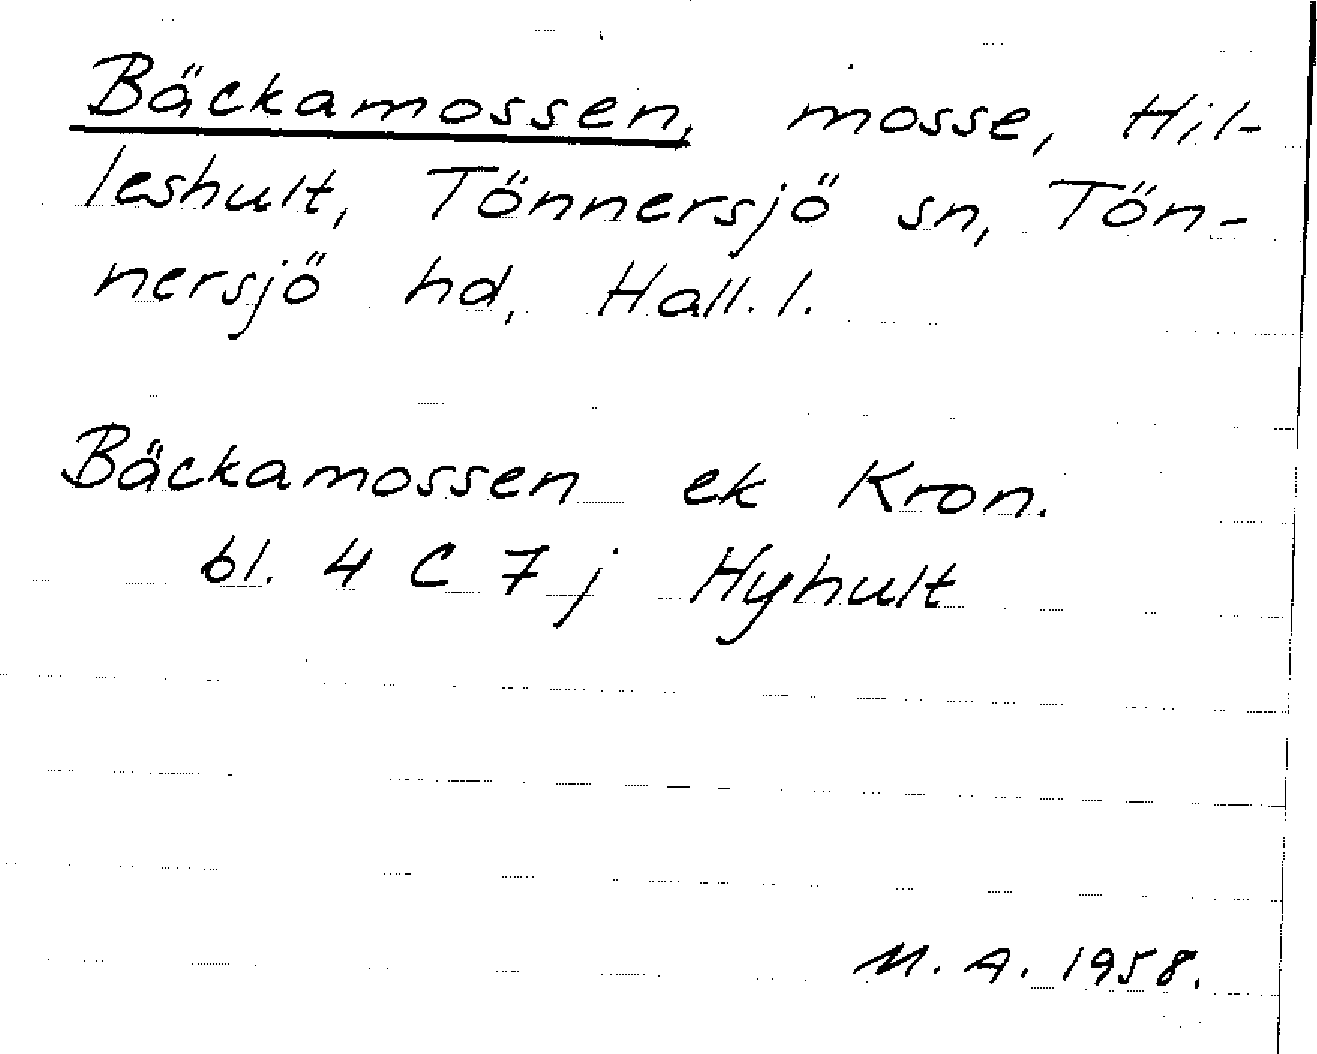 Bäckamossen, mosse, Hil-
leshult, Tönnersjö sn, Tön-
nersjö hd, Hall. l.
Bäckamossen ek Kron.
bl. 4 C 7 j Hyhult
M. A. 1958.